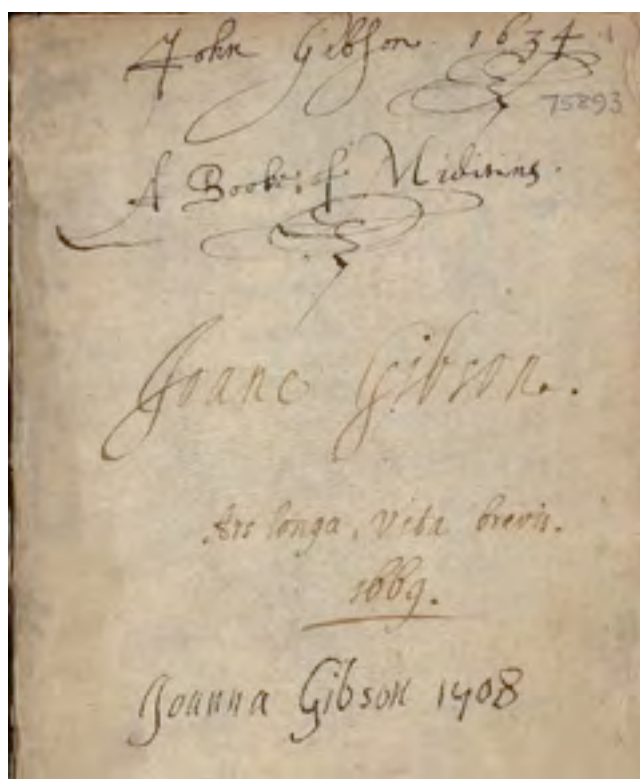 John Gibson. 1634
75893
A Booke of Midicens.
Joane Gibson.
Ars longa, Vita brevis.
1669.
Joanna Gibson 1708